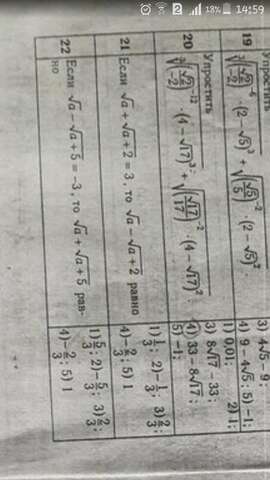 2 4 18% 14:59
19
Упростить
\sqrt[3]{(\frac{\sqrt{2}}{-2})^{-6} \cdot (2-\sqrt{5})^3} + \sqrt{(\frac{\sqrt{5}}{5})^{-2} \cdot (2-\sqrt{5})^2}
3) 4√5 – 9;
4) 9 – 4√5; 5) –1;
20
Упростить
\sqrt[3]{(\frac{\sqrt{2}}{-2})^{-12} \cdot (4-\sqrt{17})^3} + \sqrt{(\frac{\sqrt{17}}{17})^{-2} \cdot (4-\sqrt{17})^2}
1) 0,01; 2) 1;
3) 8√17 – 33;
4) 33 – 8√17;
5) –1;
21
Если √a + √a + 2 = 3, то √a – √a + 2 равна
1) 1/3; 2) – 1/3; 3) 2/3;
4) – 2/3; 5) 1
22
Если √a – √a + 5 = –3, то √a + √a + 5 рав-
но
1) 5/3; 2) – 5/3; 3) 2/3;
4) – 2/3; 5) 1